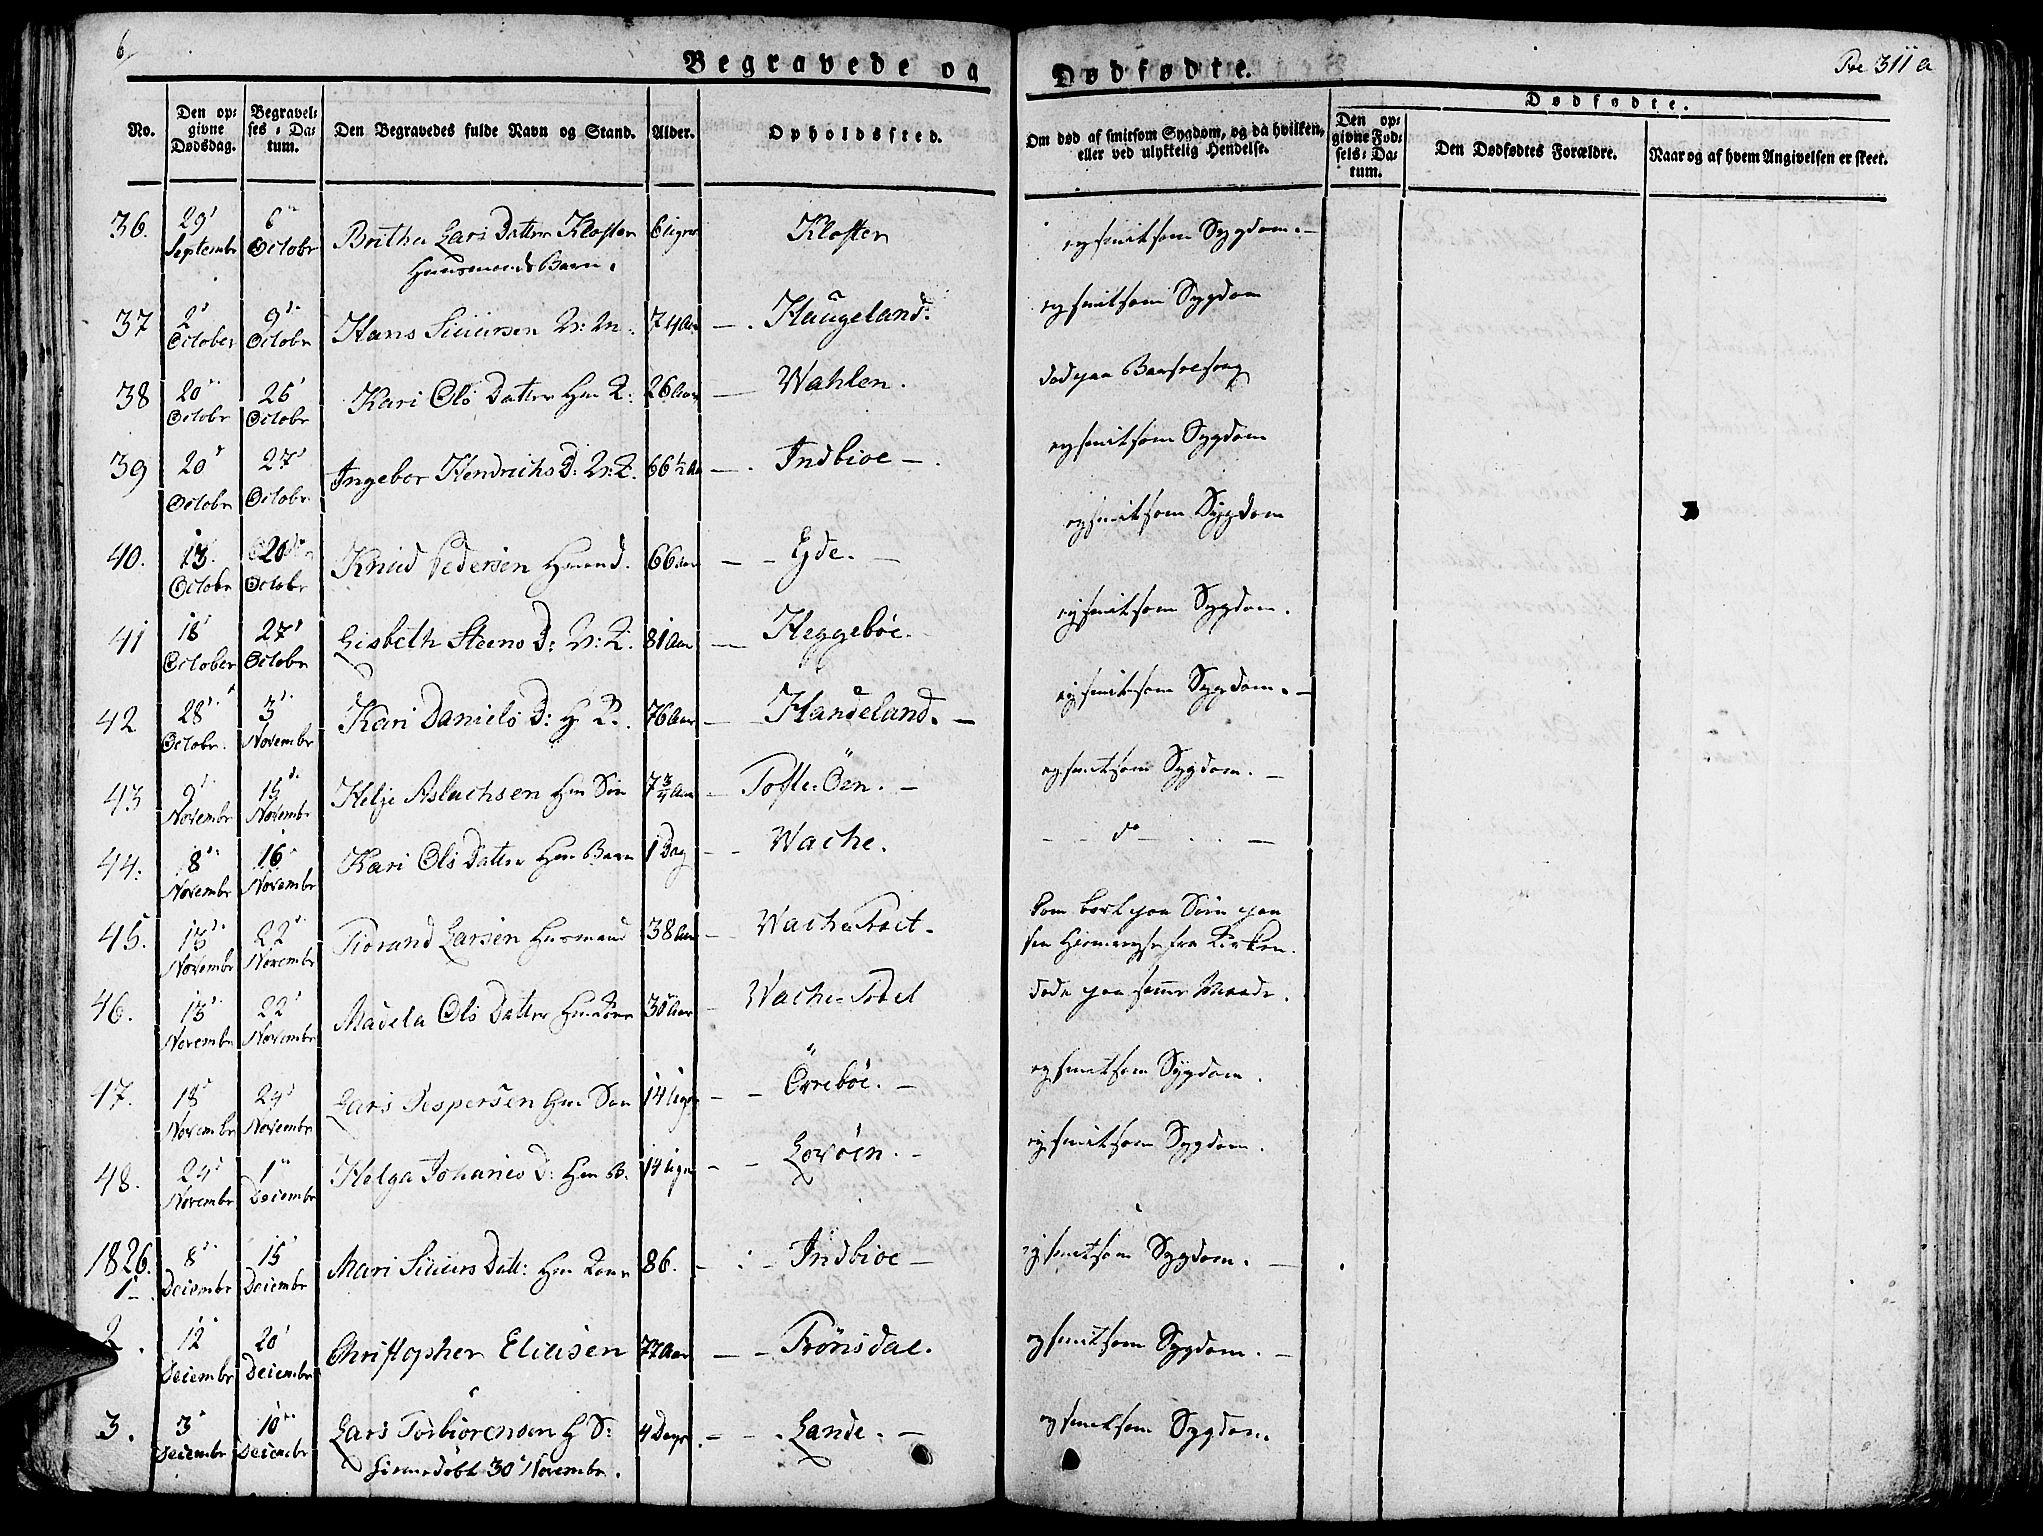 6
Begravede og
Dødfødte.
Pag 311 a
No.
Den opgivne Dødsdag.
Begravelses-Datum.
Den Begravedes fulde Navn og Stand.
Alder.
Opholdssted.
Om død af smitsom Sygdom, og da hvilken, eller ved ulykkelig Hendelse.
Dødfødte.
Den opgivne Fødsels-Datum.
Den Dødfødtes Forældre.
Naar og af hvem Angivelsen er skeet.
36. 29 Septembr 6 Octobr Britha Lars Datter Kloster 6 Uger Kloster ey smitsom Sygdom.
Huusmands Barn.
37 2 October 9 Octobr Hans Siuursen 74 Aar Haugeland. ey smitsom Sygdom
38 20 Octobr 26 Octobr Kari Ols Datter 26 Aar Wahlen. død paa Barselseng
39 20 Octobr 27 Octobr Ingebor Hendrichs D: 66½ Aar Indbioe ey smitsom Sygdom
40. 13 Octobr 20 Octobr Knud Pedersen Hmand. 66 Aar Egde. ey smitsom Sygdom
41 18 October 27 Octobr Lisbeth Steens D: 81 Aar Heggebøe. ey smitsom Sygdom.
42 28 Octobr. 3 Novembr Kari Daniels D: 76 Aar Haugeland. ey smitsom Sygdom.
43 9 Novembr 15 Novembr Helje Aslachsen Hm Søn 7¾ Aar Tofte Öen. ey smitsom Sygdom.
44. 8 Novembr 16 Novembr Kari Ols Datter Hm Barn 1 Dag Wache. do
45. 13 Novembr 22 Novembr Torund Larsen Husmand 38 Aar Wache Træt. kom bort paa Søen paa
sin Hiemreyse fra Kirken.
46. 13 Novembr 22 Novembr Madela Ols Datter Hm Kone 30 Aar Wache Træt døde paa samme Maade.
47. 18 Novembr 29 Novembr Lars Jespersen Hm Søn 14 Uger Örrebøe. ey smitsom Sygdom.
48. 24 Novembr 1 Decembr Helga Johannes D: Hm B. 14 Uger Lovøen. ey smitsom Sygdom.
1826.
1. 8 Decembr 15 Decembr Mari Siuurs Datt: Hm Kone 86. Indbioe ey smitsom Sygdom.
2. 12 Decembr 20 Decembr Christopher Eliasen 77 Aar Trönsdal. ey smitsom Sygdom.
3. 3 Decembr 10 Decembr Lars Torbiörensen H S: 4 Dage Lande. ey smitsom Sygdom.
hiemedøbt 30 Novembr.